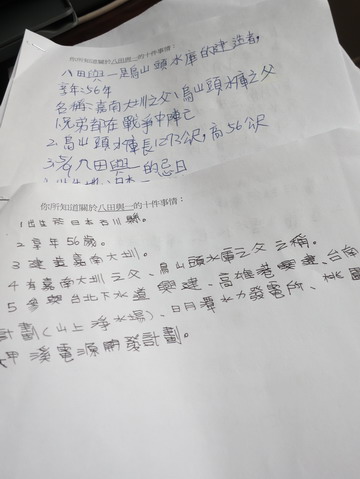 你所知道關於八田與一的十件事情：
八田與一是烏山頭水庫的建造者。
享年:56年
名稱:嘉南大圳之父、烏山頭水庫之父
1.兄弟都在戰爭中陣亡
2.烏山頭水庫長1273公尺,高56公尺
3.5/8八田與一的忌日
你所知道關於八田與一的十件事情：
1 出生於日本石川縣。
2 享年56歲。
3 建造嘉南大圳。
4 有嘉南大圳之父、烏山頭水庫之父之稱。
5 參與台北下水道興建、高雄港興建、台南
計劃(山上淨水場)、日月潭水力發電所、桃園
大甲溪電源開發計劃。